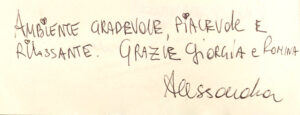 AMBIENTE GRADEVOLE, PIACEVOLE E
RILASSANTE. GRAZIE GIORGIA e ROMINA
Alessandra